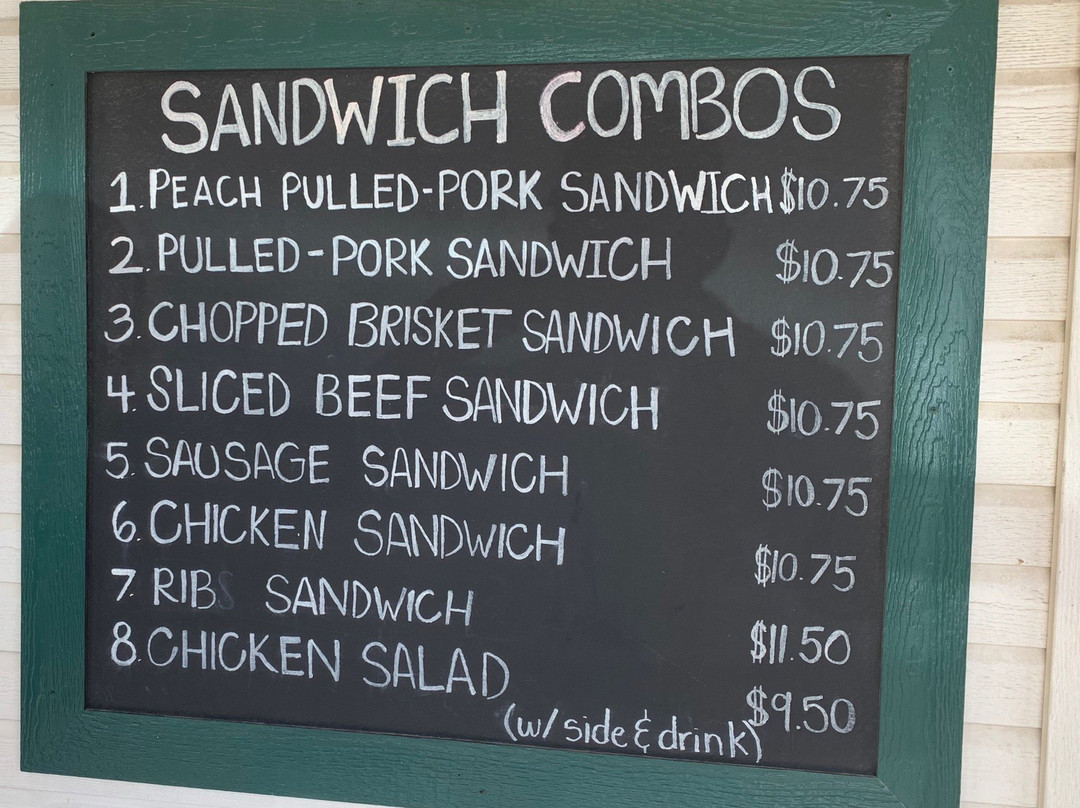 SANDWICH COMBOS
1. PEACH PULLED-PORK SANDWICH $10.75
2. PULLED-PORK SANDWICH $10.75
3. CHOPPED BRISKET SANDWICH $10.75
4. SLICED BEEF SANDWICH $10.75
5. SAUSAGE SANDWICH $10.75
6. CHICKEN SANDWICH $10.75
7. RIB SANDWICH $11.50
8. CHICKEN SALAD $9.50
(w/ side & drink)